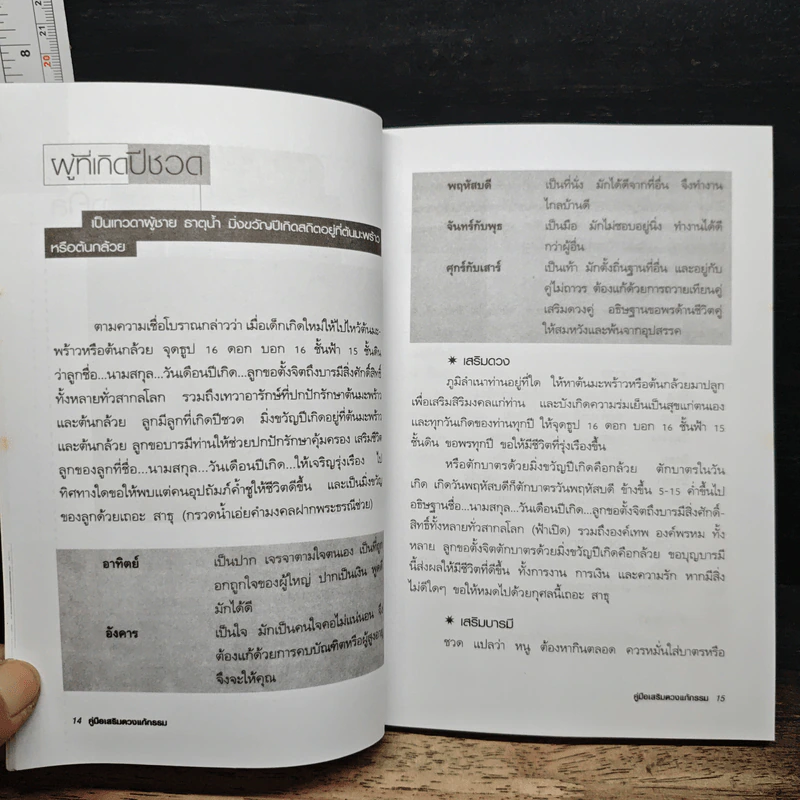 8
20
21
ผู้ที่เกิดปีชวด
เป็นเทวดาผู้ชาย ธาตุน้ำ มิ่งขวัญปีเกิดสถิตอยู่ที่ต้นมะพร้าว
หรือต้นกล้วย
ตามความเชื่อโบราณกล่าวว่า เมื่อเด็กเกิดใหม่ให้ไปไหว้ต้นมะ-
พร้าวหรือต้นกล้วย จุดธูป 16 ดอก บอก 16 ชั้นฟ้า 15 ชั้นดิน
ว่าลูกชื่อ...นามสกุล...วันเดือนปีเกิด...ลูกขอตั้งจิตถึงบารมีสิ่งศักดิ์สิทธิ์
ทั้งหลายทั่วสากลโลก รวมถึงเทวาอารักษ์ที่ปกปักรักษาต้นมะพร้าว
และต้นกล้วย ลูกมีลูกที่เกิดปีชวด มิ่งขวัญปีเกิดอยู่ที่ต้นมะพร้าว
และต้นกล้วย ลูกขอบารมีท่านให้ช่วยปกปักรักษาคุ้มครอง เสริมชีวิต
ลูกของลูกที่ชื่อ...นามสกุล...วันเดือนปีเกิด...ให้เจริญรุ่งเรือง ไป
ทิศทางใดขอให้พบแต่คนอุปถัมภ์ค้ำชูให้ชีวิตดีขึ้น และเป็นมิ่งขวัญ
ของลูกด้วยเถอะ สาธุ (กรวดน้ำเอ่ยคำมงคลฝากพระธรณีช่วย)
อาทิตย์ เป็นปาก เจรจาตามใจตนเอง เป็นที่ถูก
อกถูกใจของผู้ใหญ่ ปากเป็นเงิน พูดดี
มักได้ดี
อังคาร เป็นใจ มักเป็นคนใจคอไม่แน่นอน
ต้องแก้ด้วยการคบบัณฑิตหรือผู้สูงอายุ
จึงจะให้คุณ
14 คู่มือเสริมดวงแก้กรรม
พฤหัสบดี เป็นที่นั่ง มักได้ดีจากที่อื่น จึงทำงาน
ไกลบ้านดี
จันทร์กับพุธ เป็นมือ มักไม่ชอบอยู่นิ่ง ทำงานได้ดี
กว่าผู้อื่น
ศุกร์กับเสาร์ เป็นเท้า มักตั้งถิ่นฐานที่อื่น และอยู่กับ
คู่ไม่ถาวร ต้องแก้ด้วยการถวายเทียนคู่
เสริมดวงคู่ อธิษฐานขอพรด้านชีวิตคู่
ให้สมหวังและพ้นจากอุปสรรค
✷ เสริมดวง
ภูมิลำเนาท่านอยู่ที่ใด ให้หาต้นมะพร้าวหรือต้นกล้วยมาปลูก
เพื่อเสริมสิริมงคลแก่ท่าน และบังเกิดความร่มเย็นเป็นสุขแก่ตนเอง
และทุกวันเกิดของท่านทุกปี ให้จุดธูป 16 ดอก บอก 16 ชั้นฟ้า 15
ชั้นดิน ขอพรทุกปี ขอให้มีชีวิตที่รุ่งเรืองขึ้น
หรือตักบาตรด้วยมิ่งขวัญปีเกิดคือกล้วย ตักบาตรในวัน
เกิด เกิดวันพฤหัสบดีก็ตักบาตรวันพฤหัสบดี ข้างขึ้น 5-15 ค่ำขึ้นไป
อธิษฐานชื่อ...นามสกุล...วันเดือนปีเกิด...ลูกขอตั้งจิตถึงบารมีสิ่งศักดิ์-
สิทธิ์ทั้งหลายทั่วสากลโลก (ฟ้าเปิด) รวมถึงองค์เทพ องค์พรหม ทั้ง
หลาย ลูกขอตั้งจิตตักบาตรด้วยมิ่งขวัญปีเกิดคือกล้วย ขอบุญบารมี
นี้ส่งผลให้มีชีวิตที่ดีขึ้น ทั้งการงาน การเงิน และความรัก หากมีสิ่ง
ไม่ดีใดๆ ขอให้หมดไปด้วยกุศลนี้เถอะ สาธุ
✷ เสริมบารมี
ชวด แปลว่า หนู ต้องหากินตลอด ควรหมั่นใส่บาตรหรือ
คู่มือเสริมดวงแก้กรรม 15